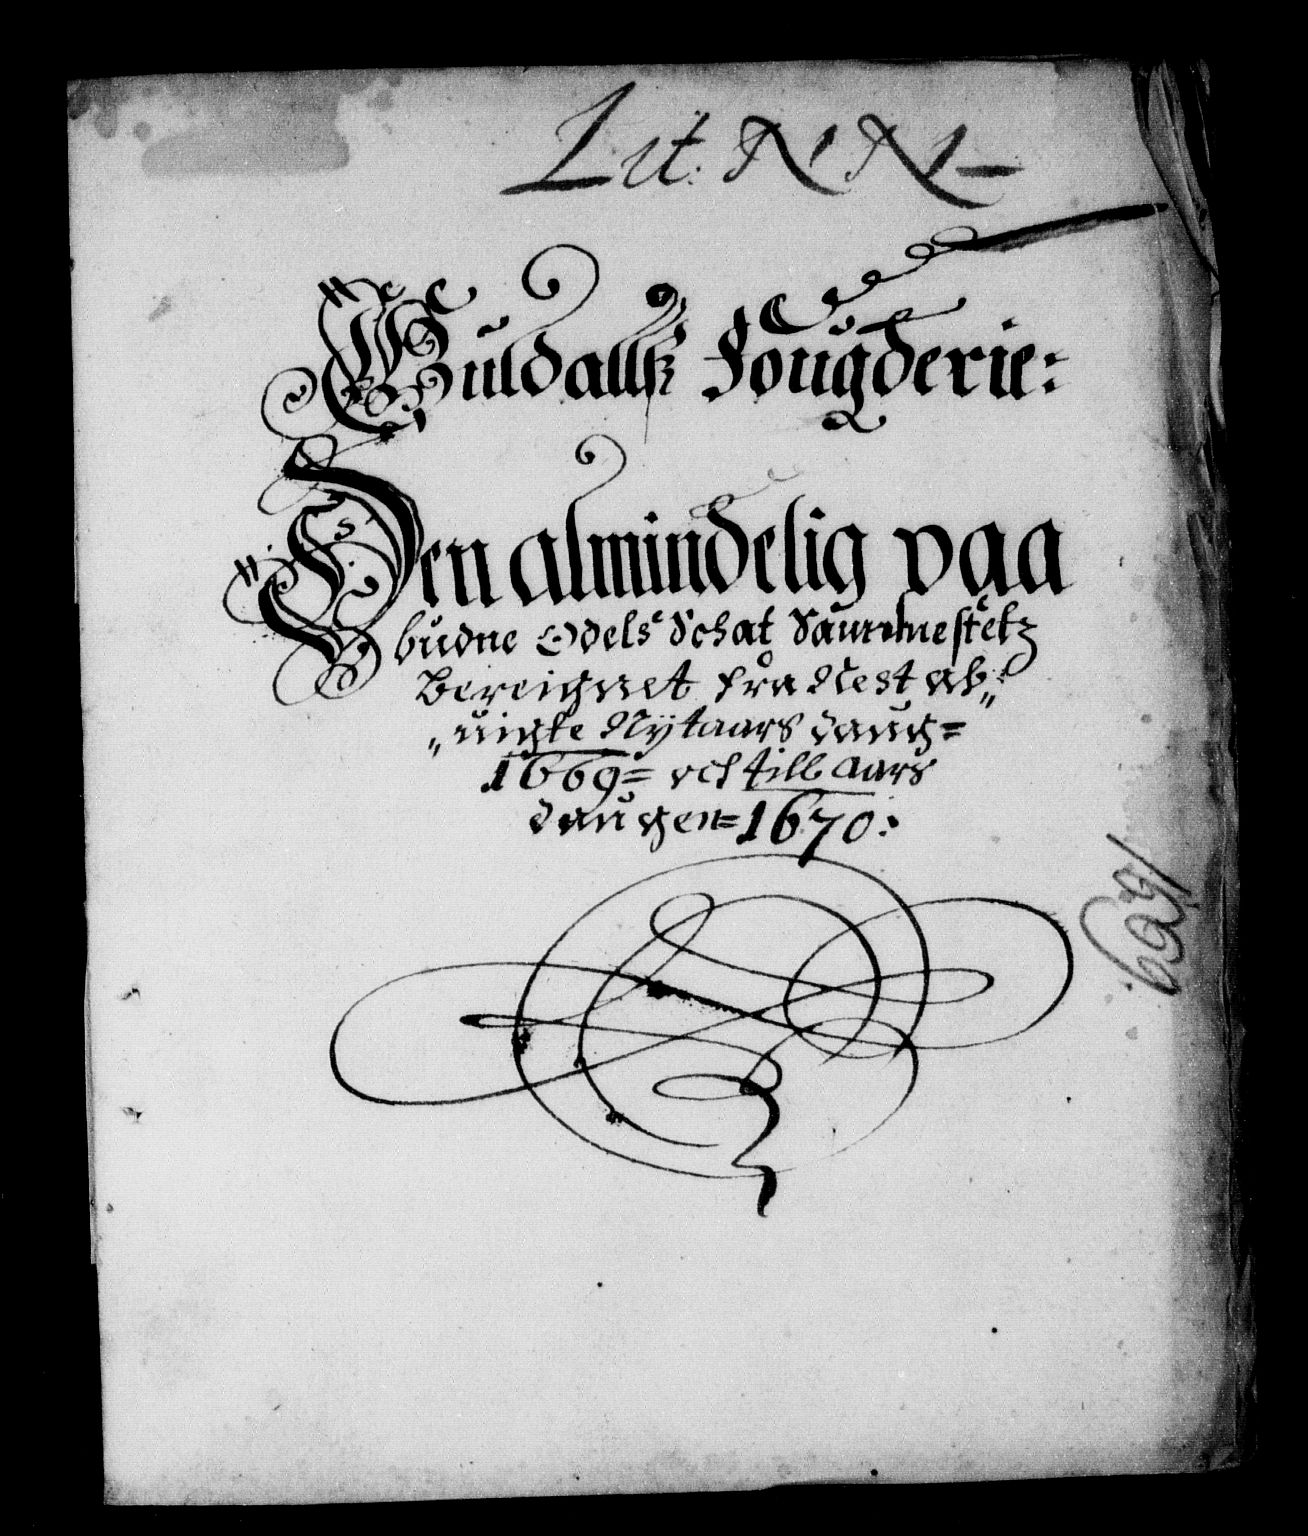 Lit. NN
Guldallß Fougderie:
Den almindelig paa
budne Odels Schat Sammestetz
Bereignet fra Nest ab„
„uigte Nytaars daug=
1669= och till aars
daugen=1670:
1669